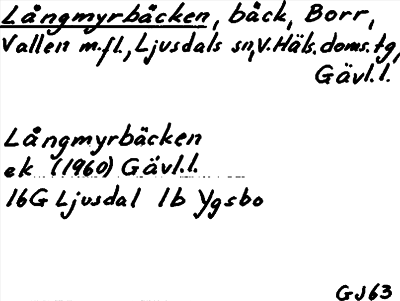 Långmyrbäcken, bäck, Borr,
Vallen m.fl., Ljusdals sn, V. Häls. doms. tg,
Gävl.l.
Långmyrbäcken
ek (1960) Gävl.l.
16G Ljusdal 1b Ygsbo
GJ63